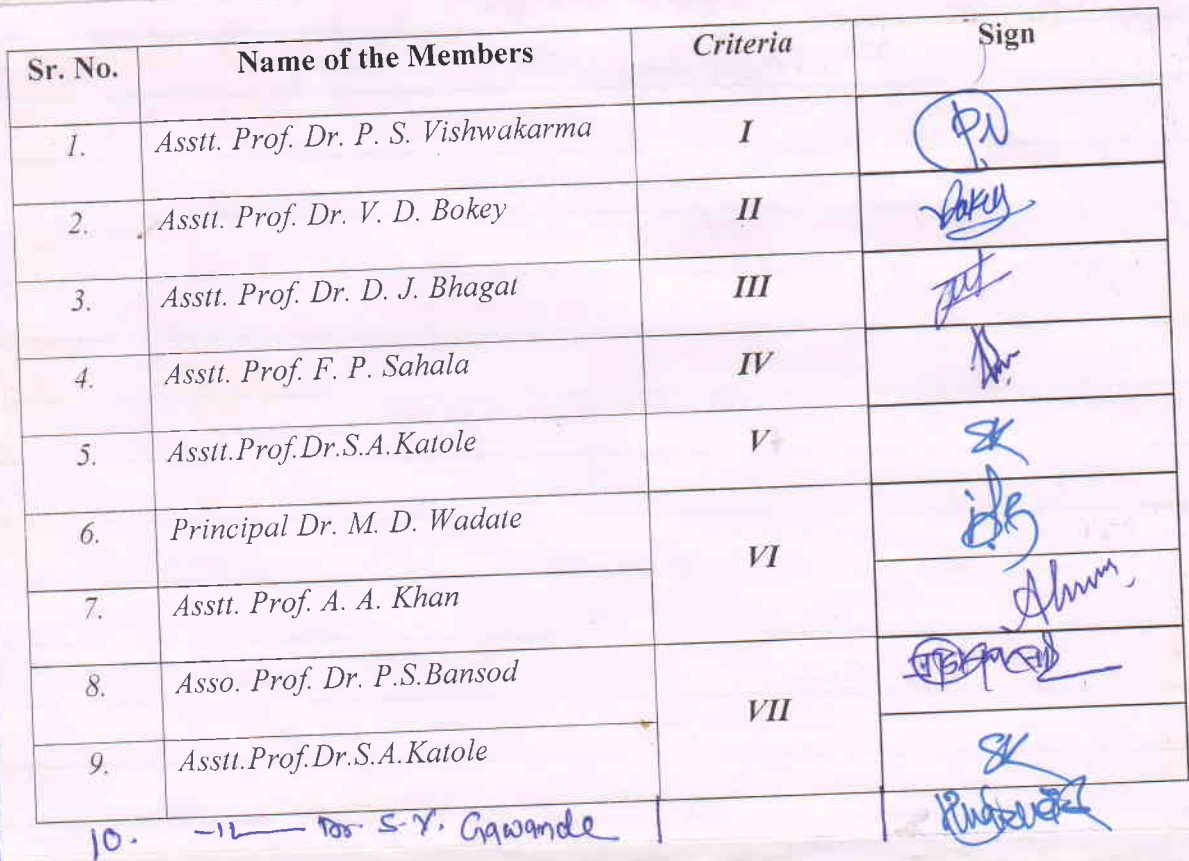 Sr. No. Name of the Members Criteria Sign
1. Asstt. Prof. Dr. P. S. Vishwakarma I
2. Asstt. Prof. Dr. V. D. Bokey II Bokey
3. Asstt. Prof. Dr. D. J. Bhagat III
4. Asstt. Prof. F. P. Sahala IV
5. Asstt.Prof.Dr.S.A.Katole V SK
6. Principal Dr. M. D. Wadate
VI
7. Asstt. Prof. A. A. Khan
8. Asso. Prof. Dr. P.S.Bansod
VII
9. Asstt.Prof.Dr.S.A.Katole SK
10. -11- Dr. S. Y. Gawande